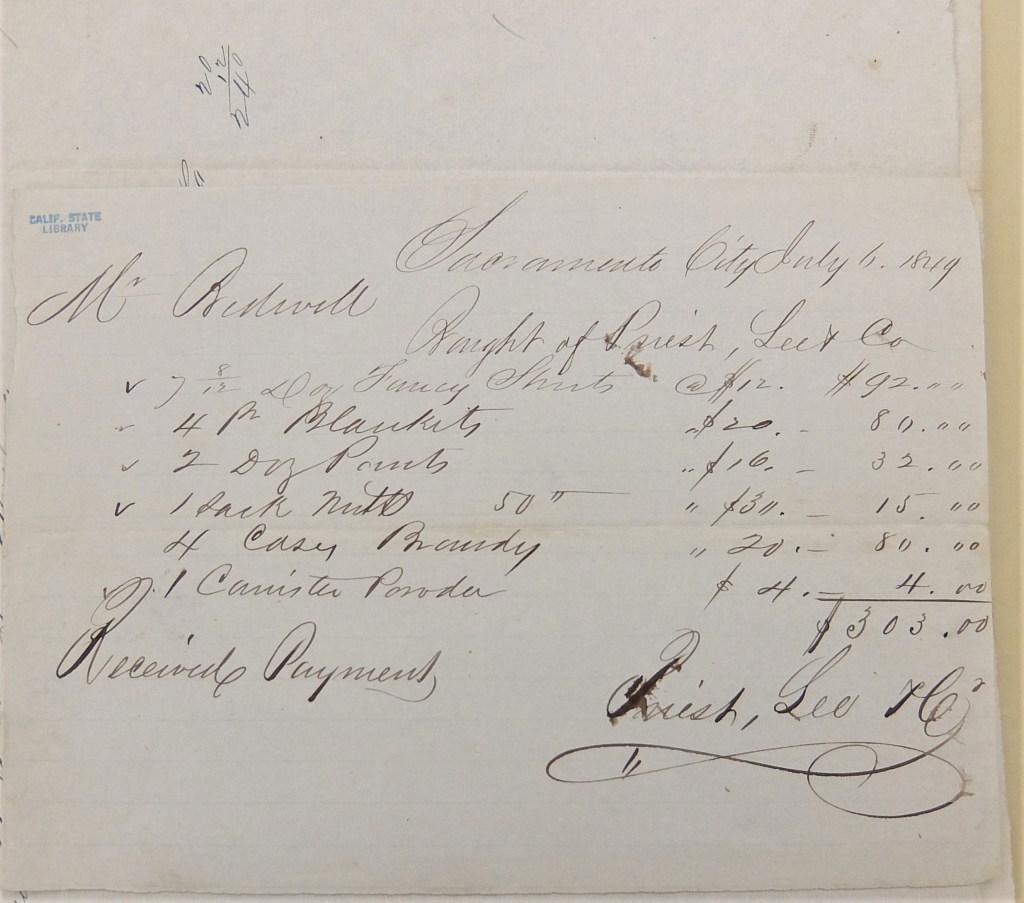 20
12
240
CALIF. STATE
LIBRARY
Sacramento City July 6. 1849
Mr Bidwell
Bought of Priest, Lee & Co
v 7 8/12 Doz Fancy Shirts @ $12. $92. " "
v 4 pr Blankets " $20. - 80. " "
v 2 Doz Pants " $16. - 32. " "
v 1 Sack 50 " " $30. - 15. " "
4 Cases Brandy " 20. - 80. " "
1 Canister Powder $ 4. - 4. 00
$ 303.00
Received Payment
Priest, Lee & Co